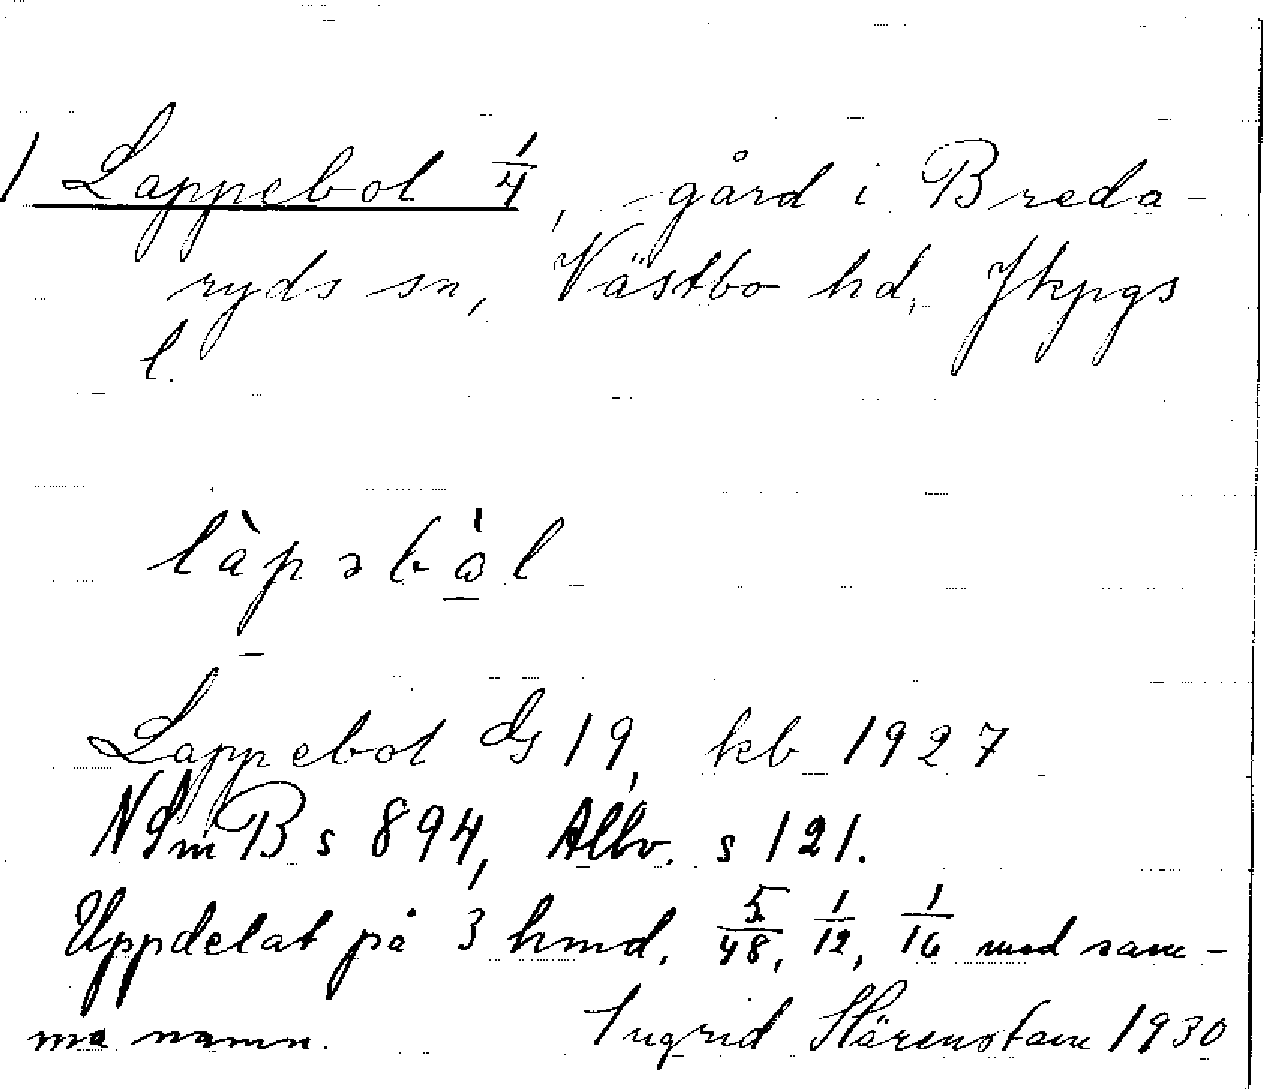 1 Lappebol 1/4, gård i Breda-
ryds sn, Västbo hd, Jkpgs
l.
làpəbω̲̍l
Lappebol G 19, kb 1927
NSmB s 894, Allv. s 121.
Uppdelat på 3 hmd. 5/48, 1/12, 1/16 med sam-
ma namn. Ingrid Härenstam 1930